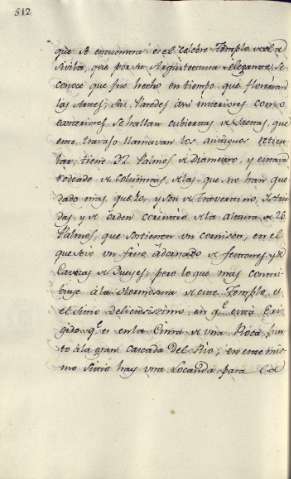 312
que se encuentra es el celebre Templo de la
Sivila, que por su Arquitectura elegante, se
conoce que fue hecho en tiempo que florecian
las Artes; sus Paredes asi interiores como
exteriores se hallan cubiertas de
este travajo llamavan los antiguos
tiene 22 Palmos de Diametro, y estava
rodeado de Columnas, de las que no han que
dado mas que 10, y son de travertino, estria
das y de orden corintio de la altura de 26
Palmos, que sostienen un cornison, en el
que se ve un friso adornado de festones y de
Cavezas de Bueyes; pero lo que mas contri
buye à la Hermosura de este Templo, es
el sitio Deliciosissimo en q.e està Eri
gido, q.e es en la Cima de una Roca jun
to à la gran Cascada del Rio; en este mis
mo sitio hay una Locanda para